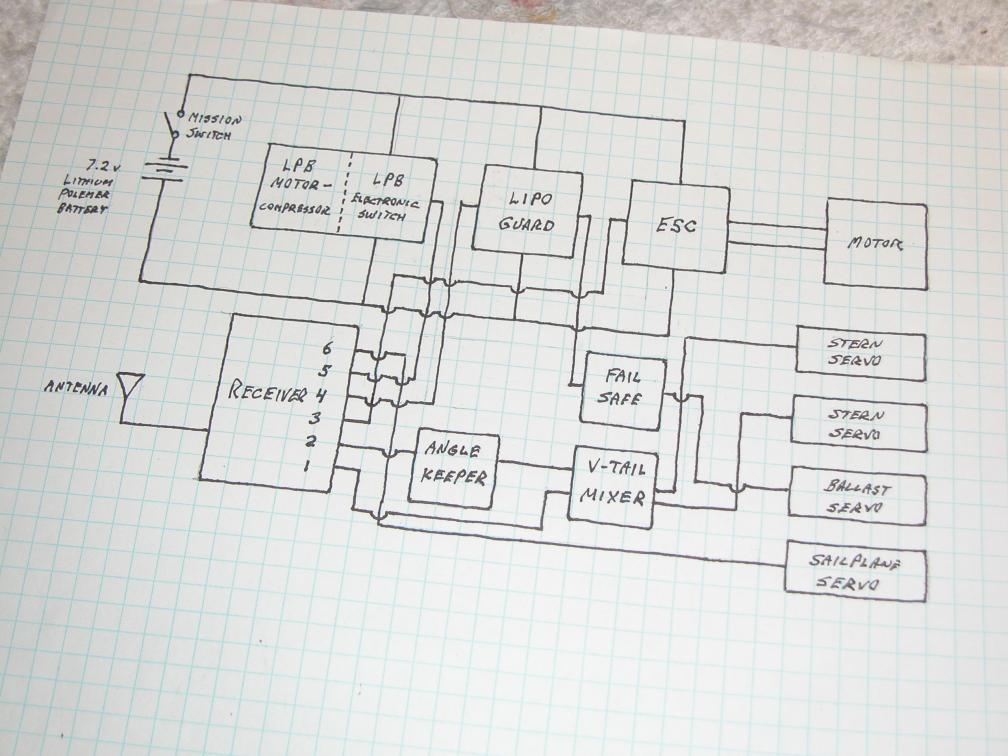 MISSION
SWITCH
7.2 V
LITHIUM
POLEMER
BATTERY
LPB
MOTOR-
COMPRESSOR
LPB
ELECTRONIC
SWITCH
LIPO
GUARD
ESC
MOTOR
ANTENNA
RECEIVER
6
5
4
3
2
1
ANGLE
KEEPER
FAIL
SAFE
V-TAIL
MIXER
STERN
SERVO
STERN
SERVO
BALLAST
SERVO
SAILPLANE
SERVO